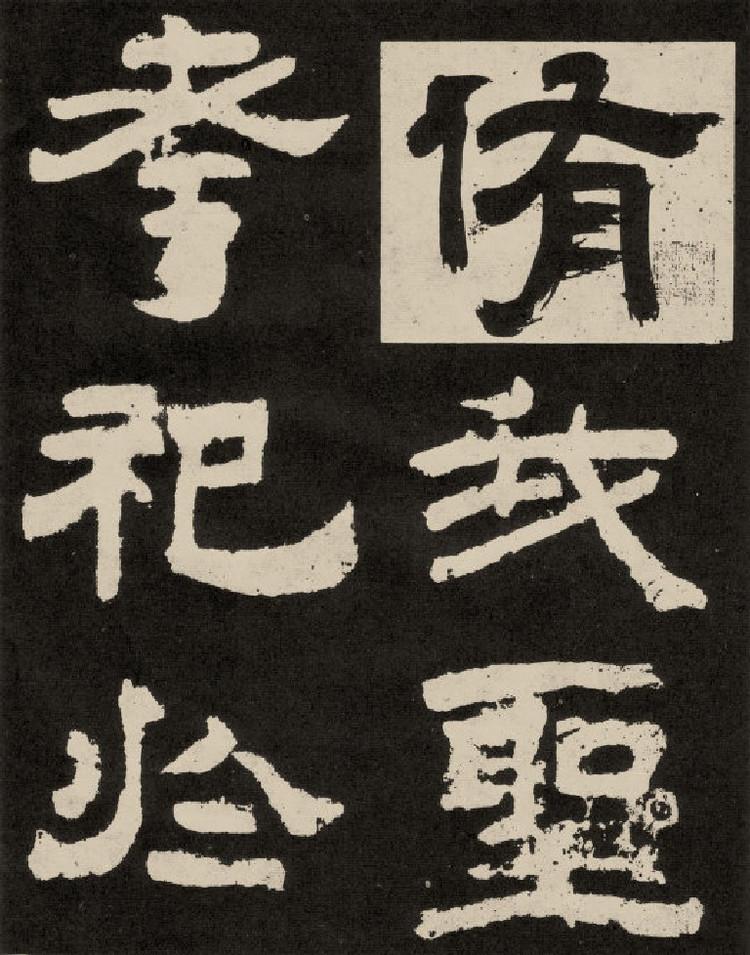 脩我聖
考祀於